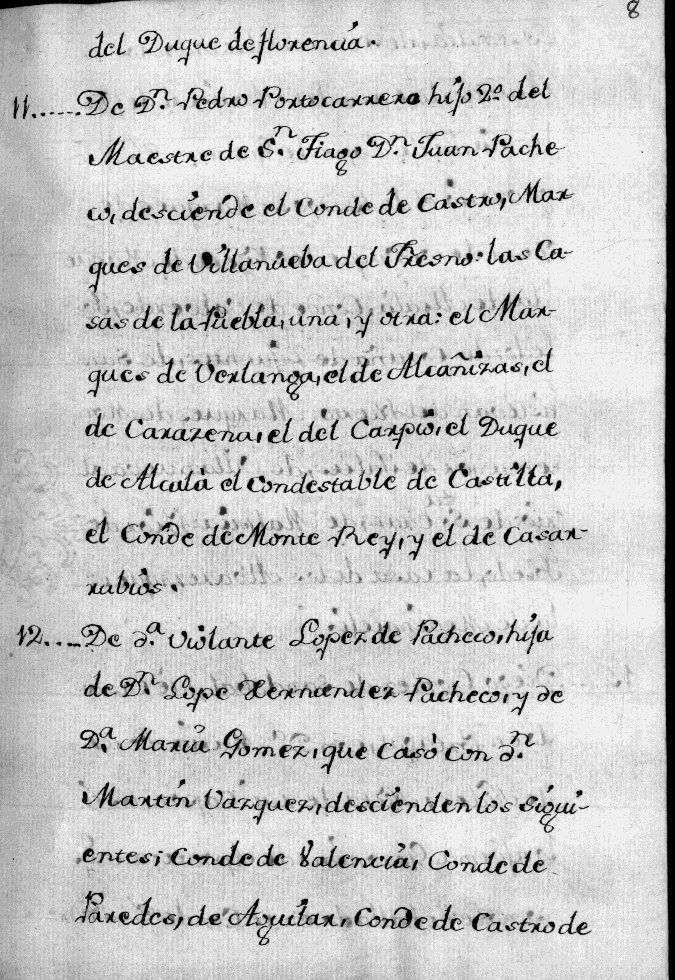 8
del Duque de florencia.
11...... De Dn. Pedro Portocarrero hijo 2o. del
Maestre de Sn. Tiago Dn. Juan Pache
co, desciende el Conde de Castro, Mar
ques de Villanueba del Fresno: las Ca-
sas de la Puebla, una, y otra: el Mar-
ques de Verlanga, el de Alcañizas, el
de Carazena, el del Carpio, el Duque
de Alcala el Condestable de Castilla,
el Conde de Monte Rey, y el de Casar-
rubios.
12.... De da. Violante Lopez de Pacheco, hija
de Dn. Lope Hernandez Pacheco, y de
Da. Maria Gomez, que casò con dn.
Martin Vazquez, descienden los sigui-
entes; Conde de Valencia, Conde de
Paredes, de Aguilar, Conde de Castro de